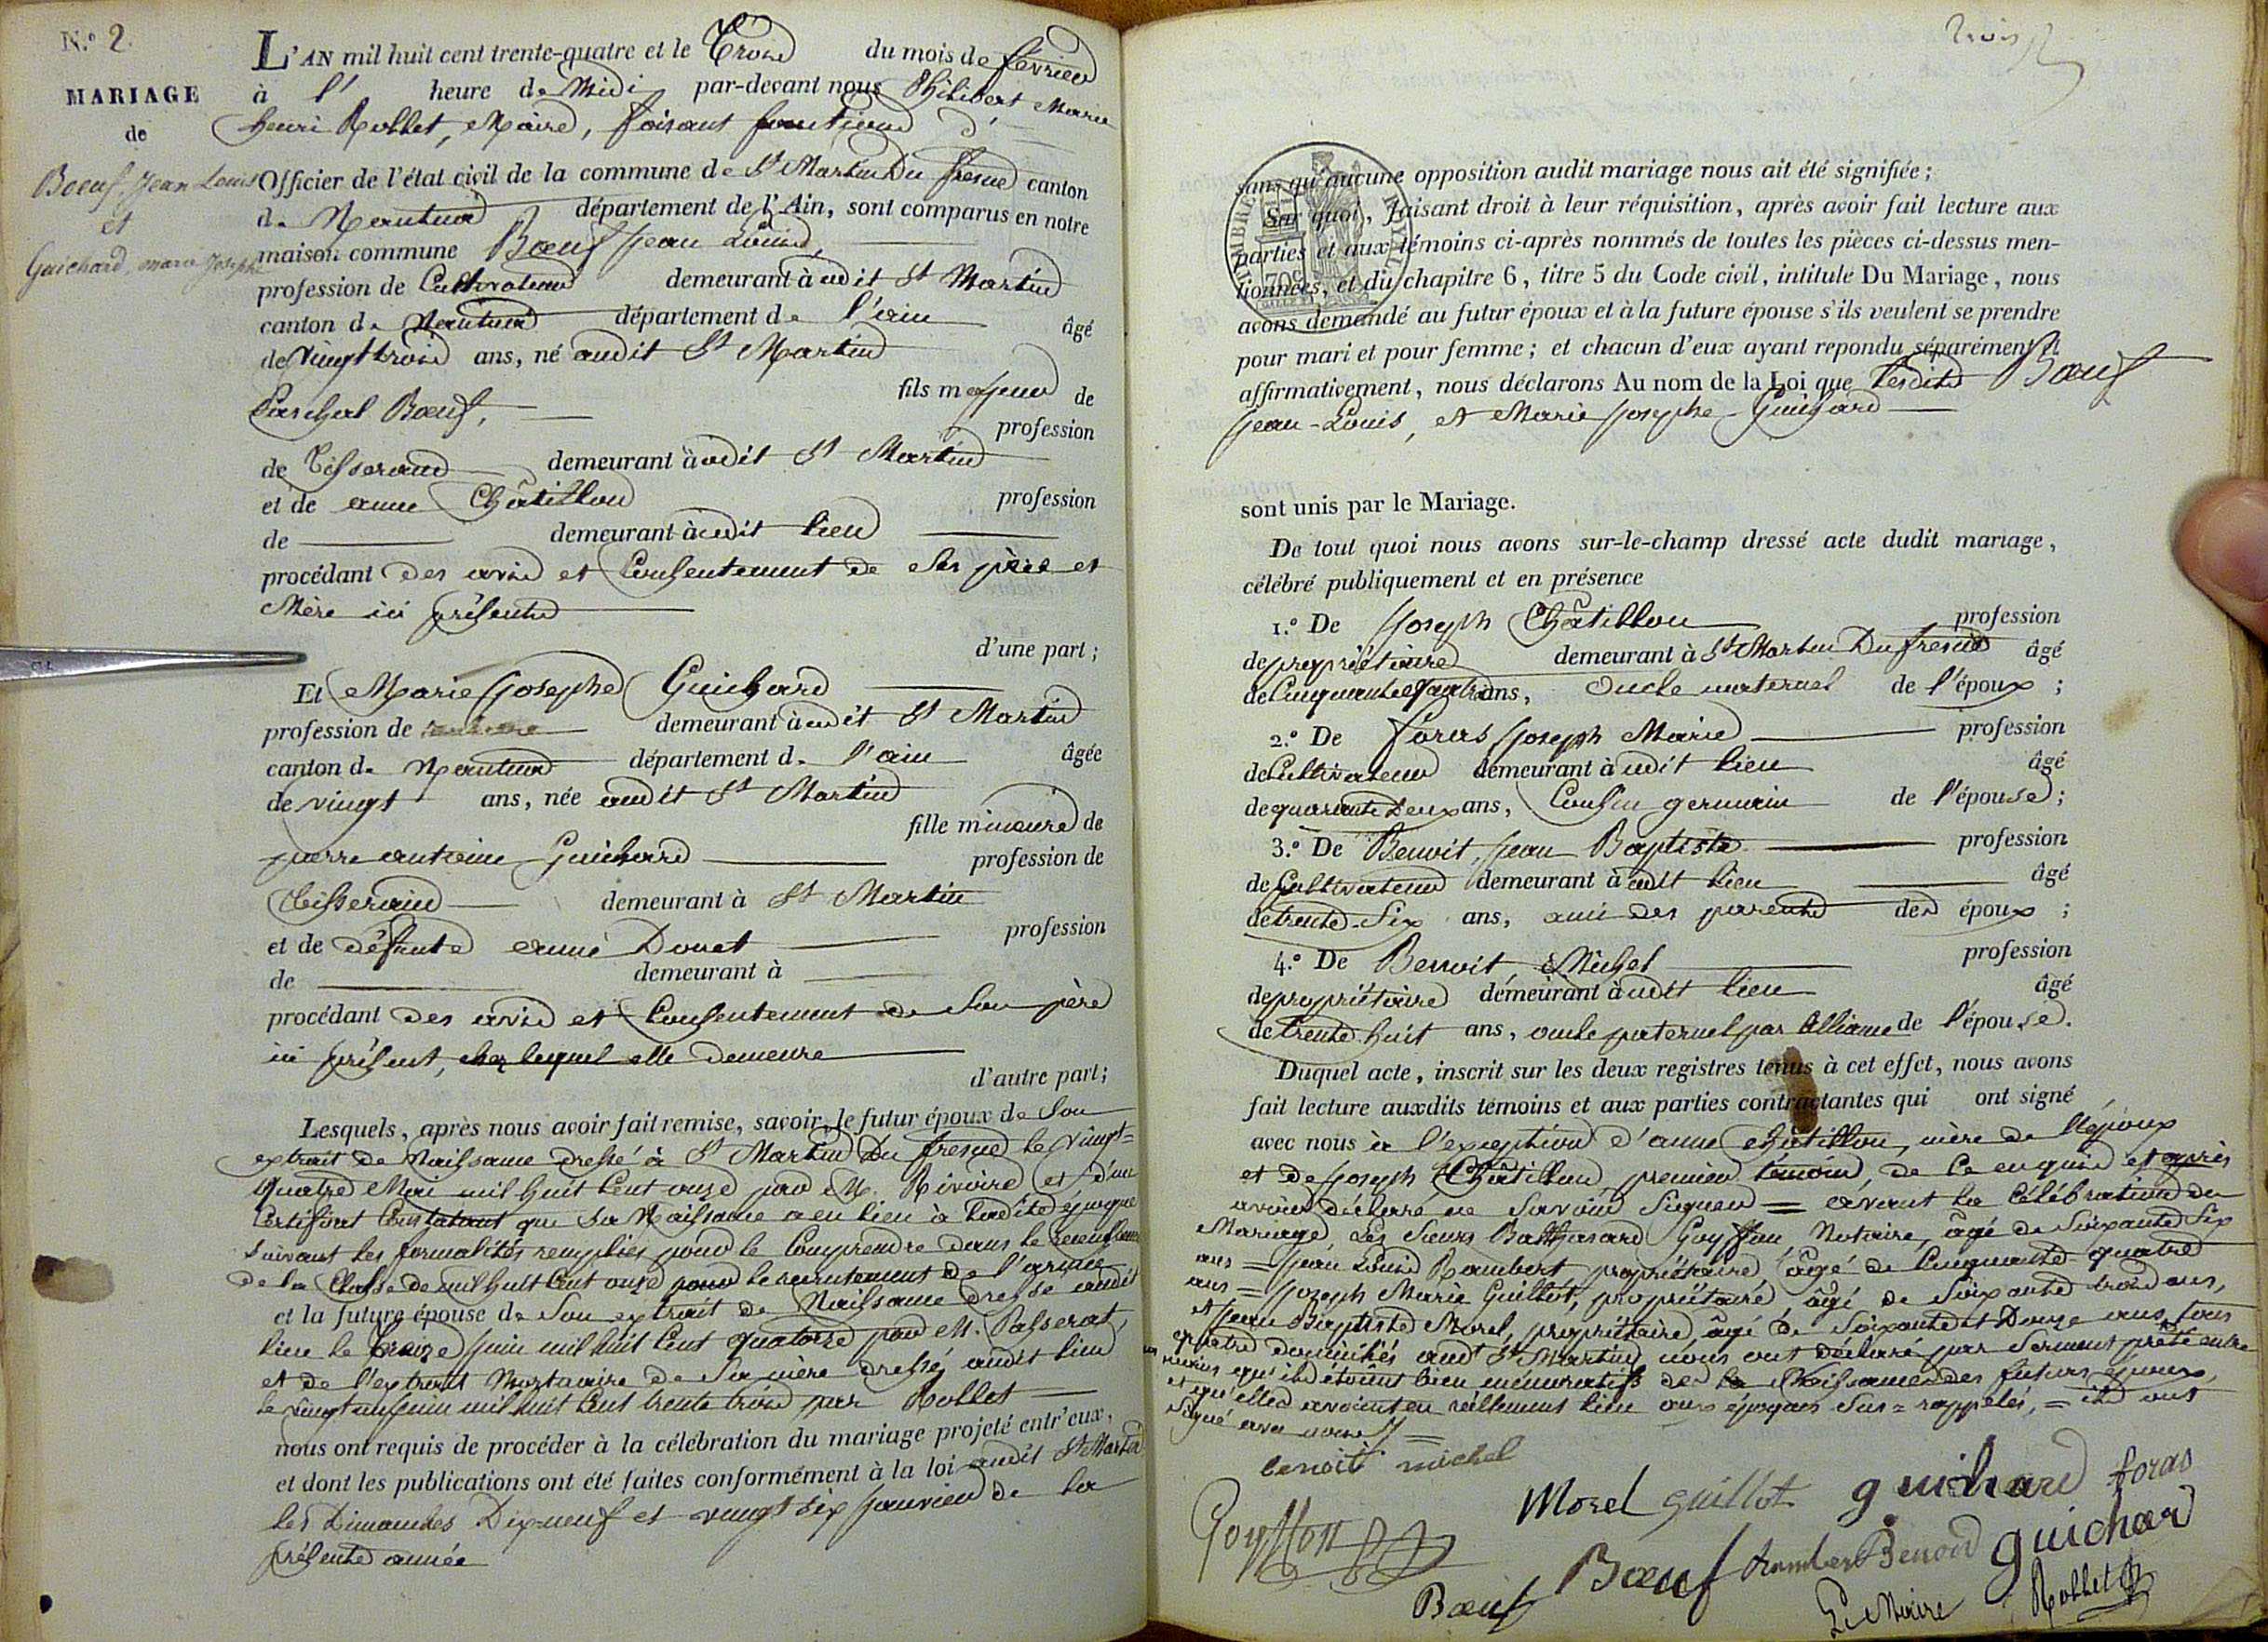 N.º 2.
MARIAGE
de
Bœuf, Jean Louis
et
Guichard, marie Josephe
L'AN mil huit cent trente-quatre et le Trois du mois de février
à l' heure de Midi par-devant nous Philibert Marie
henri Rollet, Maire, faisant fonctions d'
Officier de l'état civil de la commune de St Martin Du fresne canton
de Nantua département de l'Ain, sont comparus en notre
maison commune Bœuf Jean Louis,
profession de Cultivateur demeurant à udit St Martin
canton de Nantua département de l'ain âgé
de vingt trois ans, né audit St Martin
fils majeur de
Paschal Bœuf, profession
de Tisserand demeurant à udit St Martin
et de anne Châtillon profession
de demeurant à udit lieu
procédant des avis et Consentement de Ses père et
Mère ici présents
d'une part;
Et Marie Josephe Guichard
profession de demeurant à udit St Martin
canton de Nantua département de l'ain âgée
de vingt ans, née audit St Martin
fille mineure de
pierre antoine Guichard profession de
Tisserand demeurant à St Martin
et de défunte anne Douet profession
de demeurant à
procédant des avis et Consentement de Son père
ici présent, chez lequel elle demeure
d'autre part;
Lesquels, après nous avoir fait remise, savoir, le futur époux de Son
extrait de Naissance dressé à St Martin Du fresne le vingt=
quatre Mai mil huit Cent onze par M. Rivoire et d'un
Certificat Constatant que Sa Naissance a eu lieu à ladite époque
Suivant les formalités remplies pour le Comprendre dans le recensement
de la Classe de mil huit Cent onze pour le recrutement de l'armée
et la future épouse de Son extrait de Naissance dressé audit
lieu le treize Juin mil huit Cent quatorze par M. Passerat,
et de l'extrait Mortuaire de Sa mère dressé audit lieu
le vingt un Juin mil huit Cent trente trois par Rollet
nous ont requis de procéder à la célébration du mariage projeté entr'eux,
et dont les publications ont été faites conformément à la loi audit St Martin
les Dimanches Dix-neuf et vingt six Janvier de la
présente année
trois
TIMBRE ROYAL
70c
sans qu'aucune opposition audit mariage nous ait été signifiée;
Sur quoi, faisant droit à leur réquisition, après avoir fait lecture aux
parties et aux témoins ci-après nommés de toutes les pièces ci-dessus men-
tionnées, et du chapitre 6, titre 5 du Code civil, intitule Du Mariage, nous
avons demandé au futur époux et à la future épouse s'ils veulent se prendre
pour mari et pour femme; et chacun d'eux ayant repondu séparément et
affirmativement, nous déclarons Au nom de la Loi que lesdits Bœuf
Jean-Louis, et Marie Josephe Guichard
sont unis par le Mariage.
De tout quoi nous avons sur-le-champ dressé acte dudit mariage,
célébré publiquement et en présence
1.º De Joseph Châtillon profession
de propriétaire demeurant à St Martin Du fresne âgé
de Cinquante quatre ans, Oncle maternel de l'époux;
2.º De foras Joseph Marie profession
de Cultivateur demeurant à udit lieu âgé
de quarante deux ans, Cousin germain de l'épouse;
3.º De Benoit, Jean Baptiste profession
de Cultivateur demeurant à udit lieu âgé
de trente-Six ans, ami des parents des époux;
4.º De Benoit, Michel profession
de propriétaire demeurant à udit lieu âgé
de trente huit ans, oncle paternel par Alliance de l'épouse.
Duquel acte, inscrit sur les deux registres tenus à cet effet, nous avons
fait lecture auxdits témoins et aux parties contractantes qui ont signé
avec nous à l'exception d'anne châtillon, mère de l'époux
et de Joseph Châtillon premier témoin, de Ce enquis et après
avoir déclaré ne Savoir Signer = avant la Célébration du
Mariage, Les Sieurs Balthasard Goyffon, Notaire, âgé de Soixante Six
ans = Jean Louis Rambert propriétaire, âgé de Cinquante quatre
ans = Joseph Marie Guillot, propriétaire, âgé de Soixante trois ans,
et Jean Baptiste Morel, propriétaire, âgé de Soixante et Douze ans, tous
quatre domiciliés audt St Martin nous ont déclaré par Serment prêté entre
nos mains qu'ils étoient bien mémoratifs de la Naissance des futurs époux,
et qu'elles avoient eu réellement lieu aux époques Sus=rappelés, = ils ont
Signé avec nous =
benoit michel
Morel guillot guichard foras
Goyffon
Bœuf Bœuf Rambert Benoit guichard
Le Maire Rollet